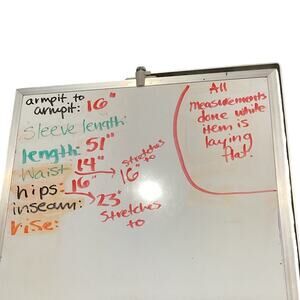 armpit to
armpit: 16"
Sleeve length:
length: 51"
Waist: 14" stretches to 16"
hips: 16" 23" stretches to
inseam:
rise:
All
Measurements
done while
item is
laying
flat.